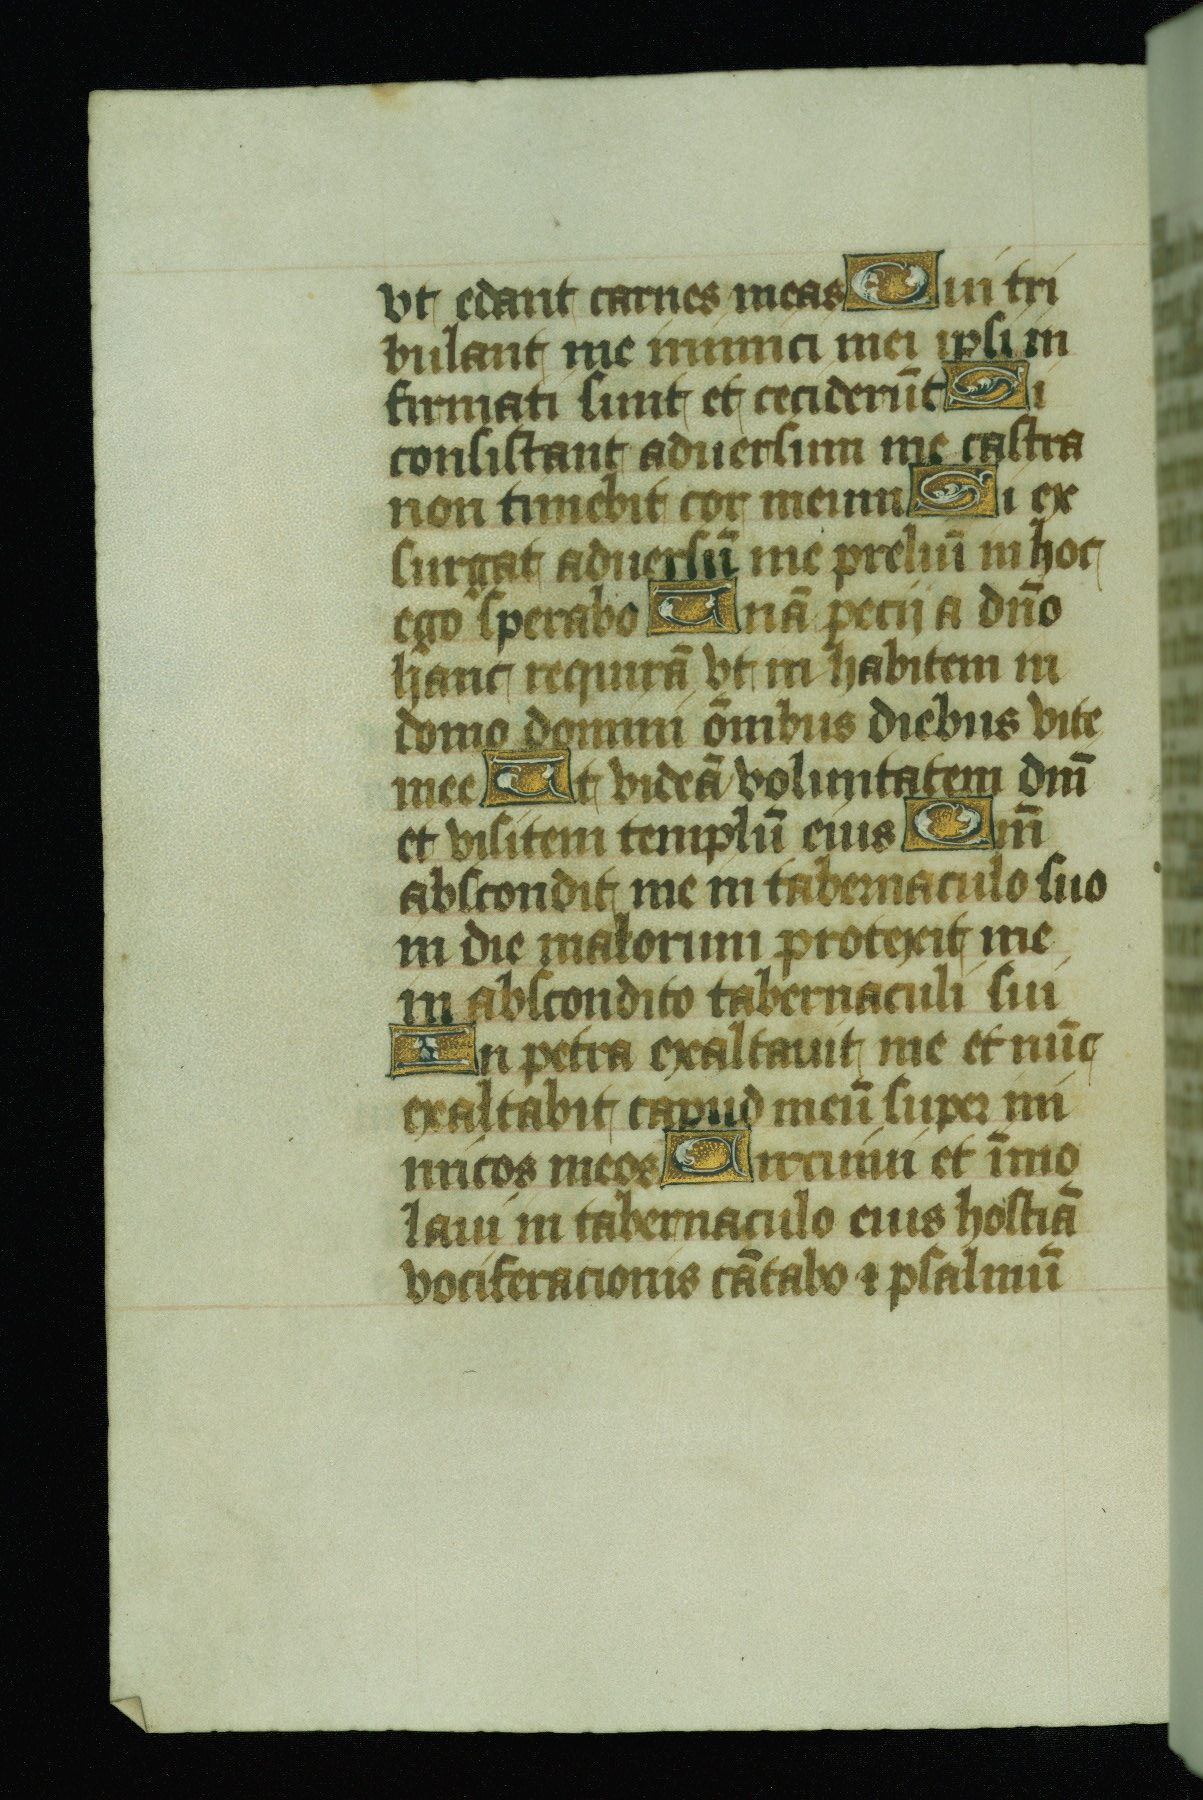 vt edant carnes meas Qui tri
bulant me inimici mei ipsi in
firmati sunt et ceciderūt Si
consistant aduersum me castra
non timebit cor meum Si ex
surgat aduersū me preliū in hoc
ego sperabo Unā pecij a dn̄o
hanc requirā vt in habitem in
domo domini ōmibus diebus vite
mee Ut videā voluntatem dn̄i
et visitem templū eius Qm̄
abscondit me in tabernaculo suo
in die malorum protexit me
in abscondito tabernaculi sui
In petra exaltauit me et nūc
exaltabit capud meū super ini
micos meos Circuiui et īmo
laui in tabernaculo eius hostiā
vociferacionis cātabo ⁊ psalmū